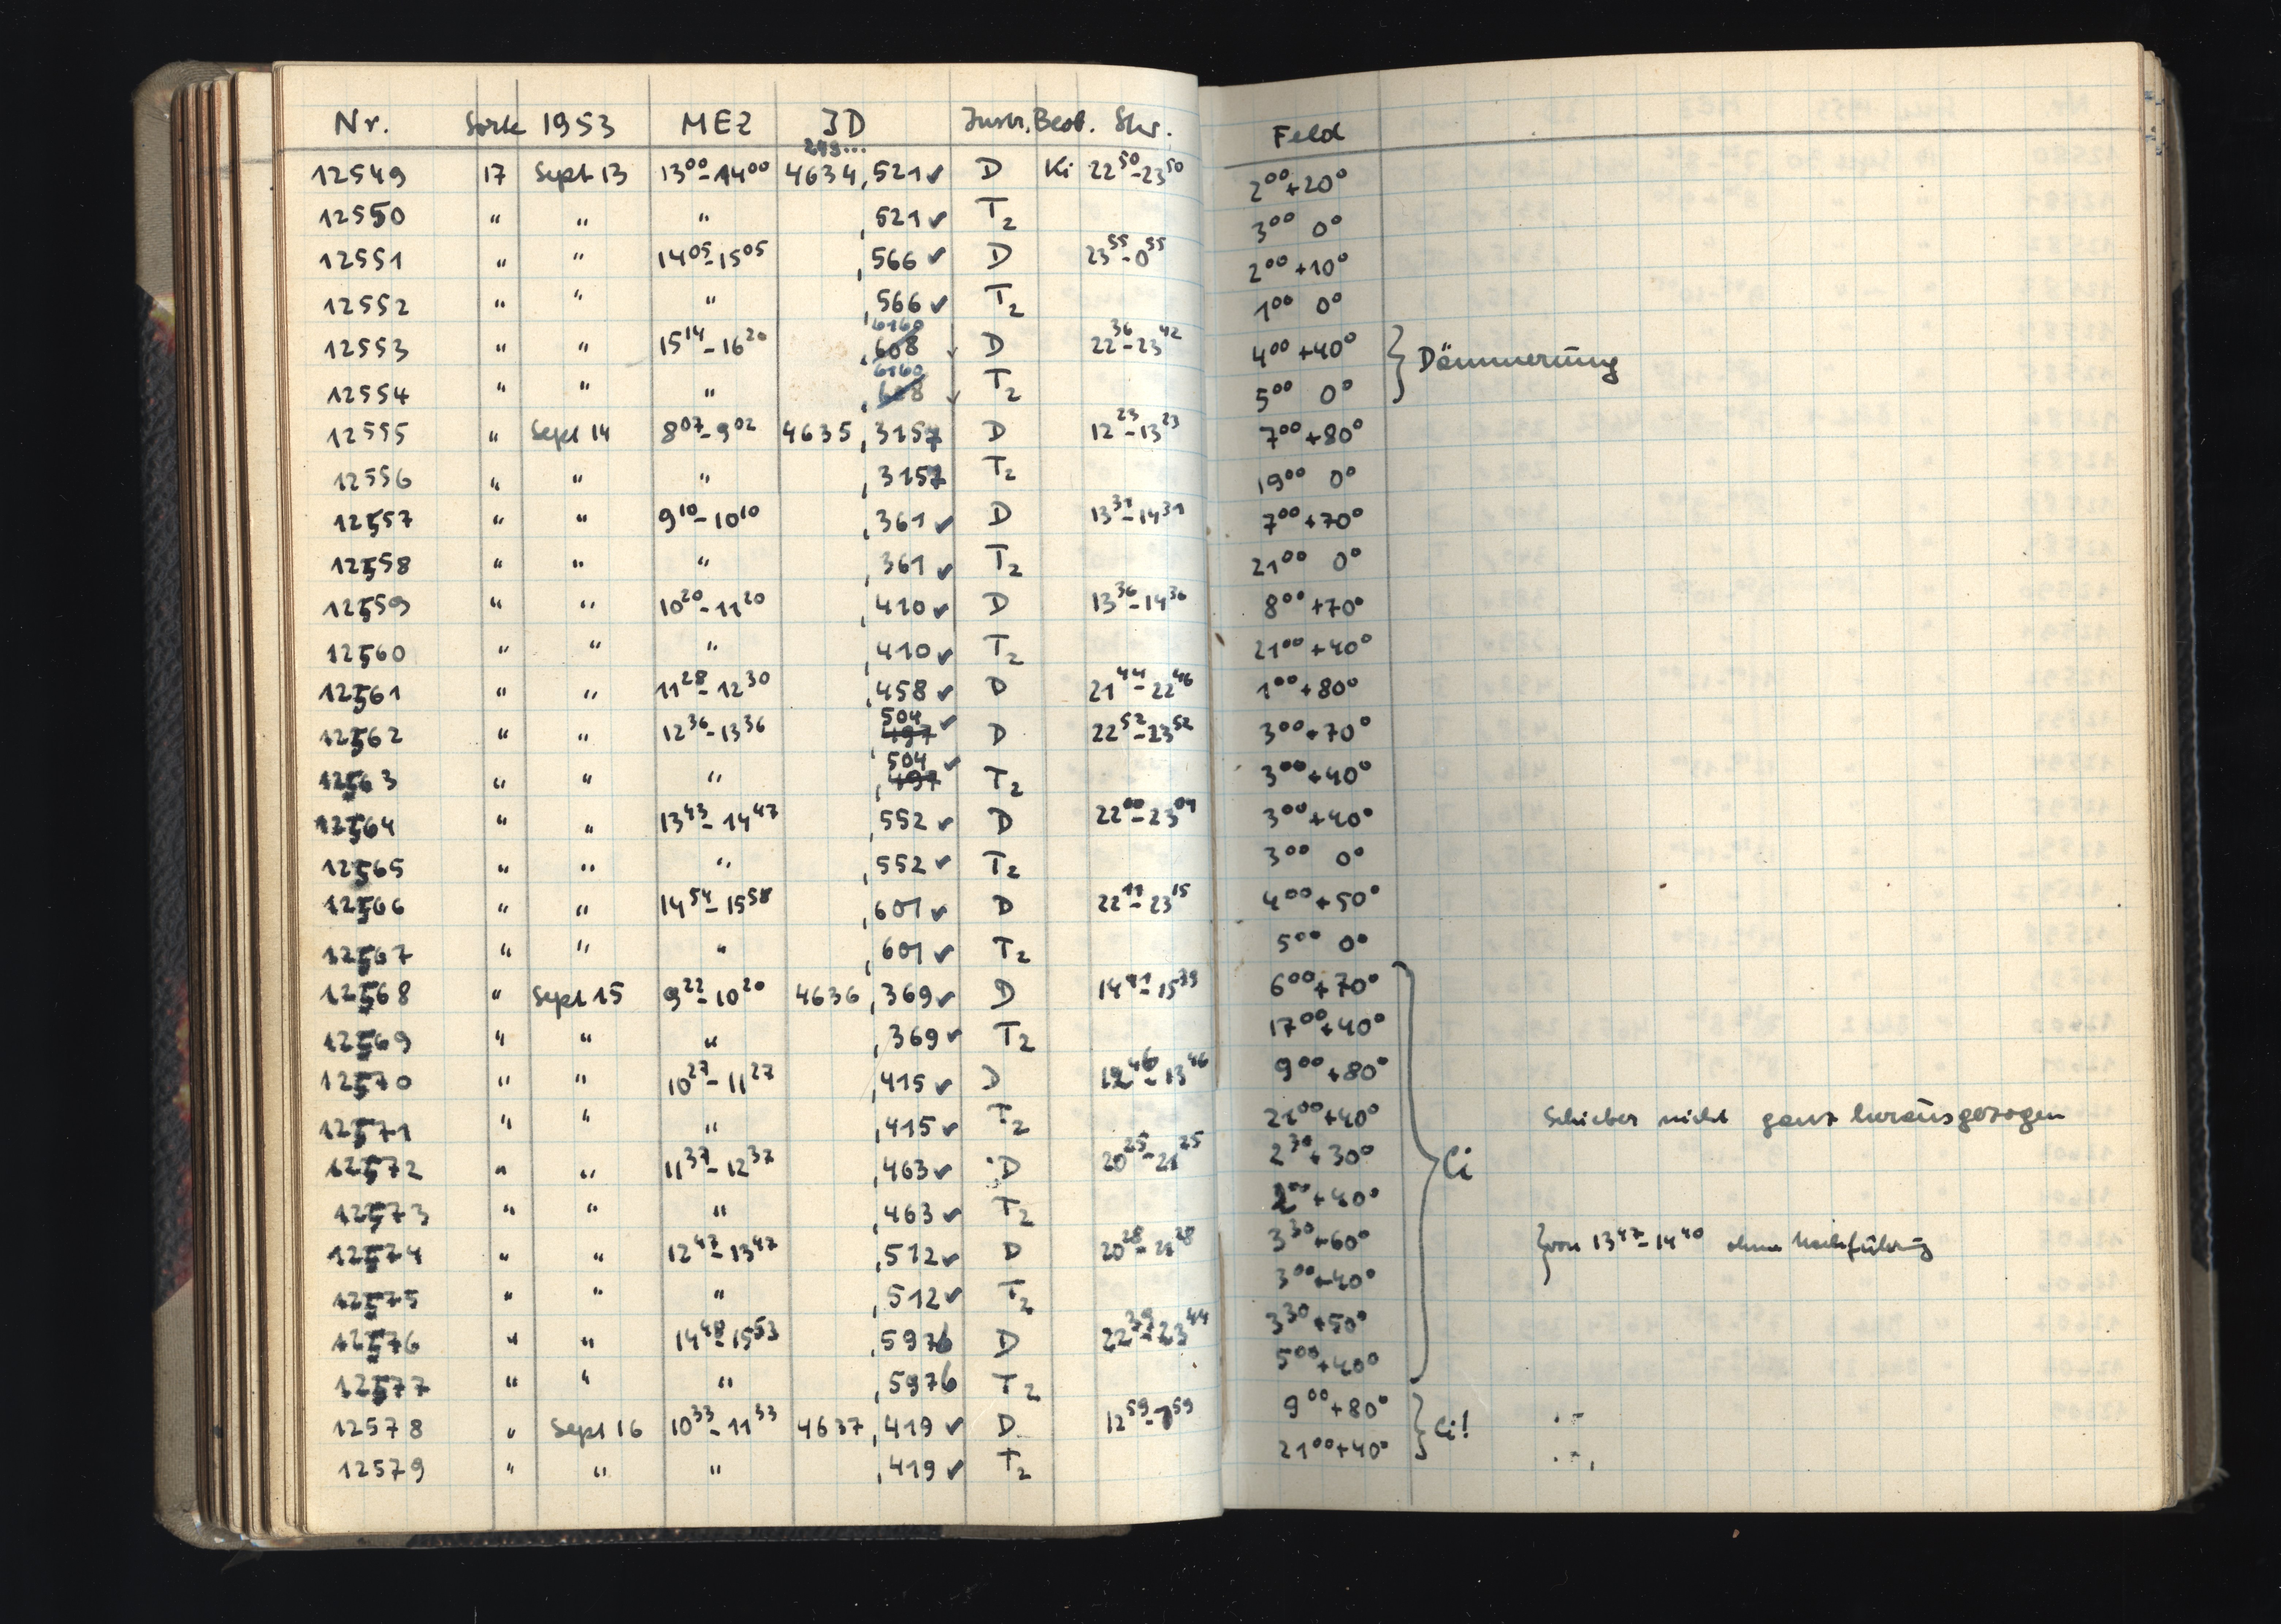 Nr. Sorte 1953 MEZ JD Instr. Beob. Stw. Feld
243...
12549 17 Sept 13 13⁰⁰-14⁰⁰ 4634,521✓ D Ki 22⁵⁰-23⁵⁰ 2⁰⁰+20°
12550 " " " ,521✓ T₂ 3⁰⁰ 0°
12551 " " 14⁰⁵-15⁰⁵ ,566✓ D 23⁵⁵-0⁵⁵ 2⁰⁰+10°
12552 " " " ,566✓ T₂ 1⁰⁰ 0°
12553 " " 15¹⁴-16²⁰ ,608 6160 ✓ D 22³⁶-23⁴² 4⁰⁰+40° } Dämmerung
12554 " " " ,608 6160 ✓ T₂ 5⁰⁰ 0°
12555 " Sept 14 8⁰⁷-9⁰² 4635,3157 D 12²³-13²³ 7⁰⁰+80°
12556 " " " ,3157 T₂ 19⁰⁰ 0°
12557 " " 9¹⁰-10¹⁰ ,361✓ D 13³¹-14³¹ 7⁰⁰+70°
12558 " " " ,361✓ T₂ 21⁰⁰ 0°
12559 " " 10²⁰-11²⁰ ,410✓ D 13³⁶-14³⁶ 8⁰⁰+70°
12560 " " " ,410✓ T₂ 21⁰⁰+40°
12561 " " 11²⁸-12³⁰ ,458✓ D 21⁴⁴-22⁴⁶ 1⁰⁰+80°
12562 " " 12³⁶-13³⁶ ,497 504✓ D 22⁵²-23⁵² 3⁰⁰+70°
12563 " " " ,497 504✓ T₂ 3⁰⁰+40°
12564 " " 13⁴³-14⁴⁷ ,552✓ D 22⁰⁰-23⁰⁴ 3⁰⁰+40°
12565 " " " ,552✓ T₂ 3⁰⁰ 0°
12566 " " 14⁵⁴-15⁵⁸ ,601✓ D 22¹¹-23¹⁵ 4⁰⁰+50°
12567 " " " ,601✓ T₂ 5⁰⁰ 0°
12568 " Sept 15 9²²-10²⁰ 4636,369✓ D 14⁴¹-15³⁹ 6⁰⁰+70°
12569 " " " ,369✓ T₂ 17⁰⁰+40°
12570 " " 10²⁷-11²⁷ ,415✓ D 12⁴⁶-13⁴⁶ 9⁰⁰+80°
12571 " " " ,415✓ T₂ 21⁰⁰+40° Schieber nicht ganz herausgezogen
12572 " " 11³⁷-12³⁷ ,463✓ D 20²⁵-21²⁵ 2³⁰+30° } Ci
12573 " " " ,463✓ T₂ 2⁰⁰+40°
12574 " " 12⁴⁷-13⁴⁷ ,512✓ D 20²⁸-21²⁸ 3³⁰+60° } von 13⁴⁷-14⁴⁰ ohne Nachführung
12575 " " " ,512✓ T₂ 3⁰⁰+40°
12576 " " 14⁴⁸-15⁵³ ,5976 D 22³⁹-23⁴⁴ 3³⁰+50°
12577 " " " ,5976 T₂ 5⁰⁰+40°
12578 " Sept 16 10³³-11³³ 4637,419✓ D 12⁵⁹ 9⁰⁰+80° } Ci!
12579 " " " ,419✓ T₂ 21⁰⁰+40°